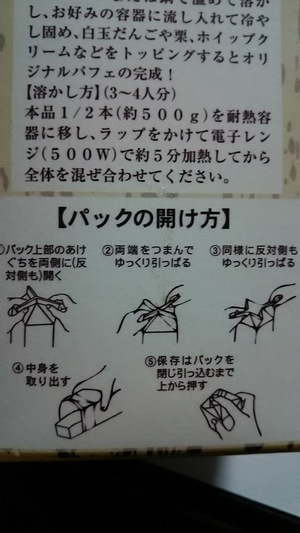 し、お好みの容器に流し入れて冷や
し固め、白玉だんごや栗、ホイップク
リームなどをトッピングするとオリ
ジナルパフェの完成！
【溶かし方】(3〜4人分)
本品1/2本(約500g)を耐熱容
器に移し、ラップをかけて電子レン
ジ(500W)で約5分加熱してから
全体を混ぜ合わせてください。
【パックの開け方】
①パック上部のあけ
ぐちを両側に(反
対側も)開く
②両端をつまんで
ゆっくり引っぱる
③同様に反対側も
ゆっくり引っぱる
④中身を
取り出す
⑤保存はパックを
閉じ引っ込むまで
上から押す